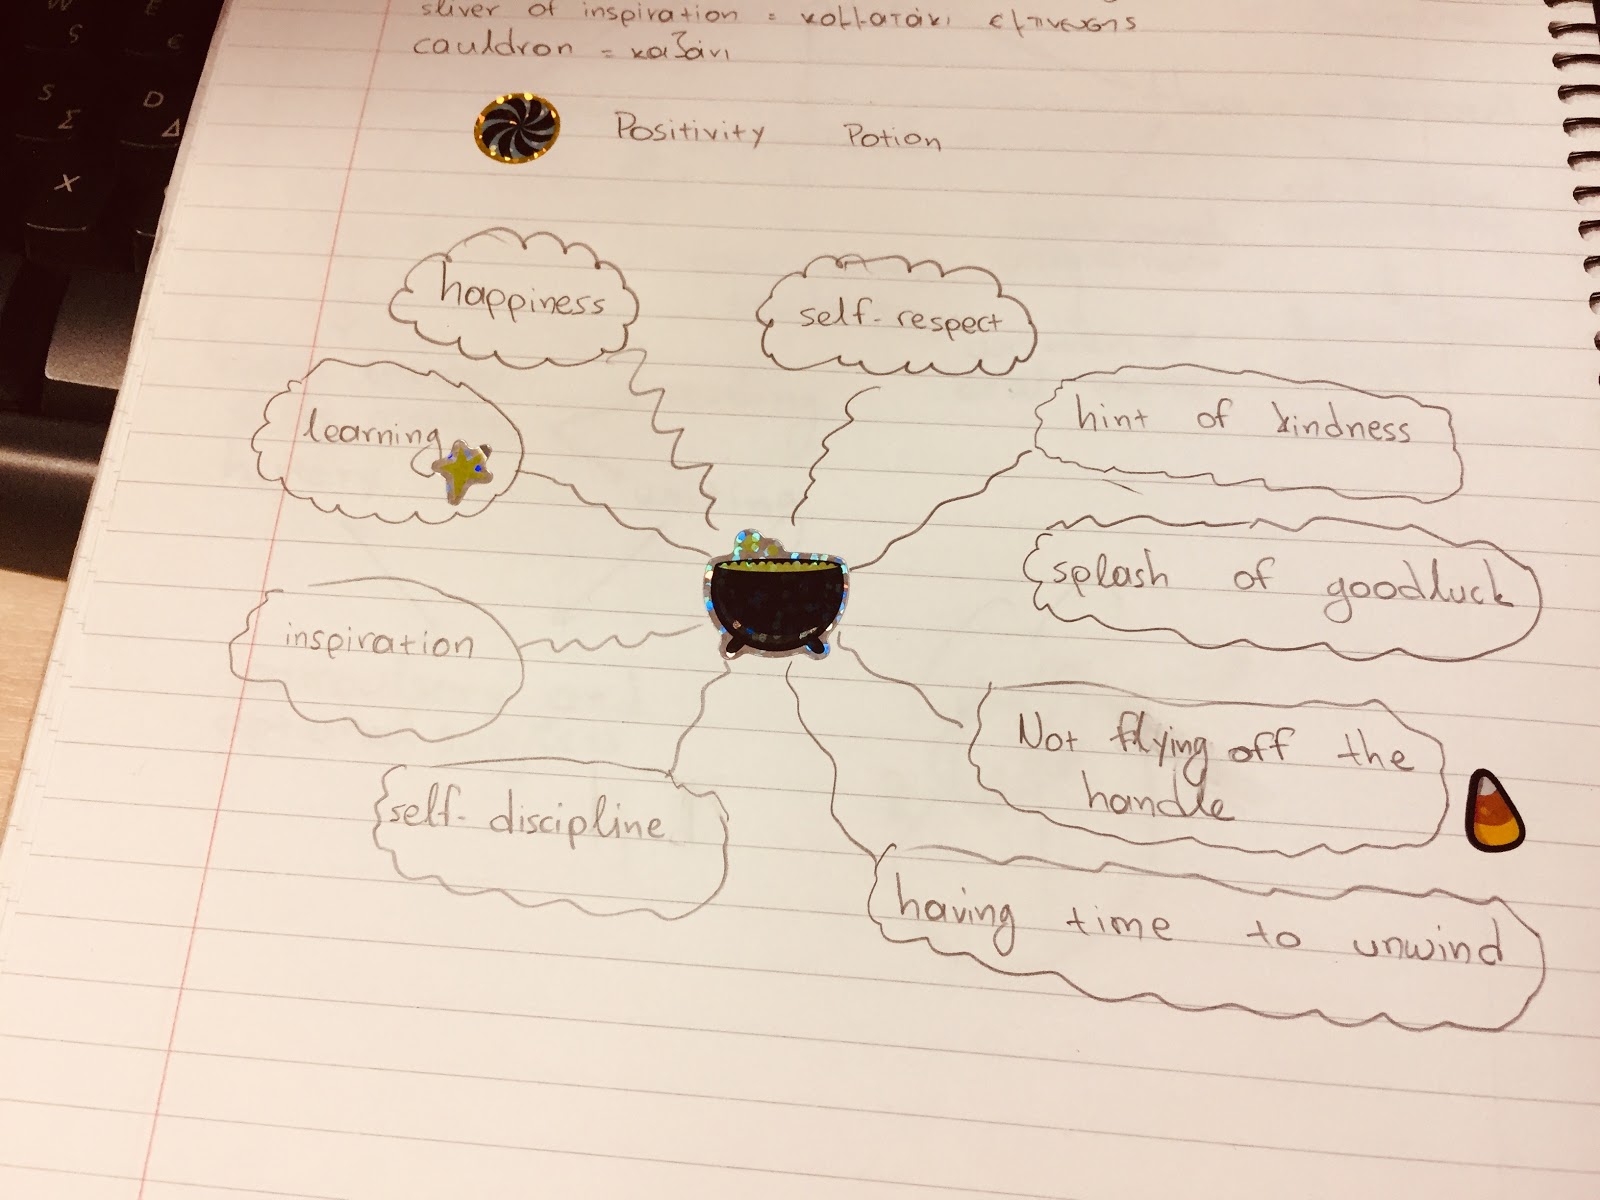 sliver of inspiration = κομματάκι έμπνευσης
cauldron = καζάνι
Positivity Potion
happiness
self-respect
learning
hint of kindness
splash of goodluck
inspiration
Not flying off the
handle
self-discipline
having time to unwind
W
E
ς
ε
S
D
Σ
Δ
X